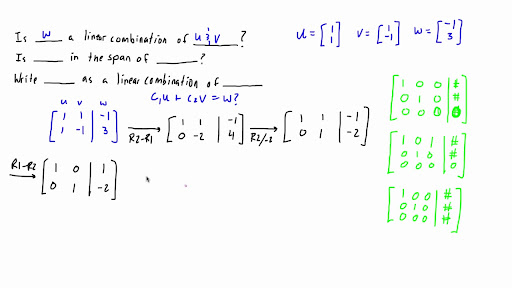 Is w a linear combination of u & v ?
u = [1 1] v = [1 -1] w = [-1 3]
Is ___ in the span of ___?
Write ___ as a linear combination of ___
c₁u + c₂v = w?
u v w
[1 1 | -1
1 -1 | 3]
R2-R1
[1 1 | -1
0 -2 | 4]
R2/-2
[1 1 | -1
0 1 | -2]
R1-R2
[1 0 | 1
0 1 | -2]
[1 0 0 | #
0 1 0 | #
0 0 0 | 0]
[1 0 1 | #
0 1 0 | #
0 0 0 | 0]
[1 0 0 | #
0 1 0 | #
0 0 0 | #]